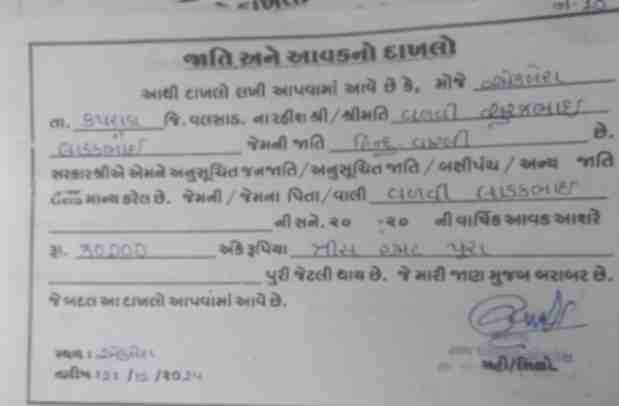 જાતિ અને આવકનો દાખલો
આથી દાખલો લખી આપવામાં આવે છે કે, મોજે
તા. કપરાડા જિ. વલસાડ. ના રહીશ શ્રી/શ્રીમતિ વળવી સુરજભાઇ
લાડકભાઇ જેમની જાતિ હિન્દુ-વારલી છે.
સરકારશ્રીએ એમને અનુસૂચિત જનજાતિ/અનુસૂચિત જાતિ / બક્ષીપંચ / અન્ય જાતિ
માન્ય કરેલ છે. જેમની / જેમના પિતા/વાલી વળવી લાડકભાઇ
ની સને. ૨૦ :૨૦ ની વાર્ષિક આવક આશરે
રૂા. 30000 અંકે રૂપિયા ત્રીસ હજાર પુરા
પુરી જેટલી થાય છે. જે મારી જાણ મુજબ બરાબર છે.
જે બદલ આ દાખલો આપવામાં આવે છે.
સ્થળ :
તારીખ : / /૨૦૨૫